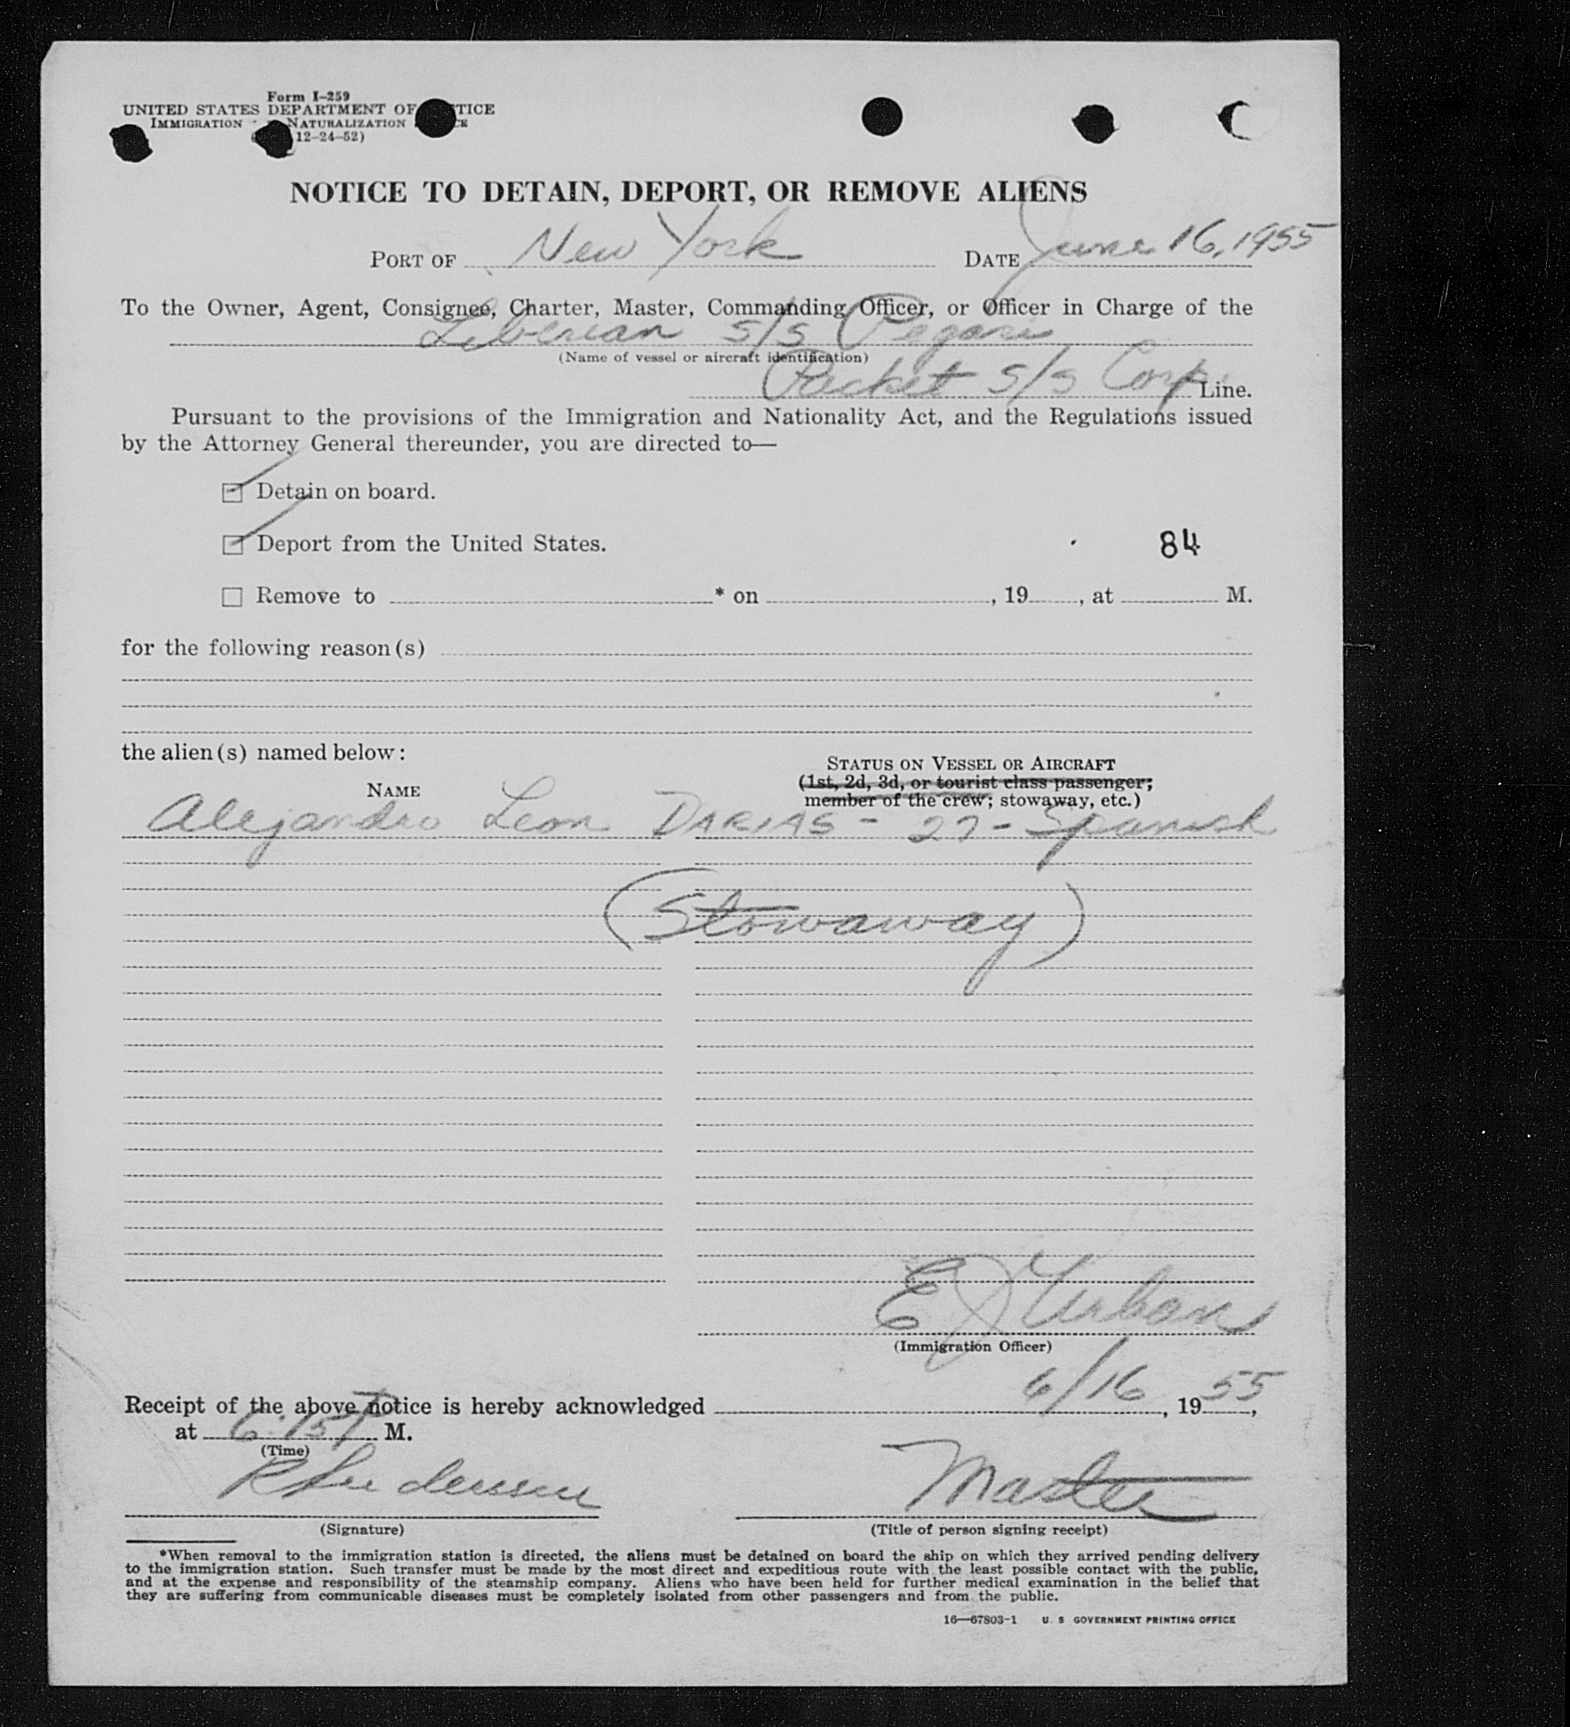 Form I-259
UNITED STATES DEPARTMENT OF TICE
IMMIGRATION NATURALIZATION
12-24-52)
NOTICE TO DETAIN, DEPORT, OR REMOVE ALIENS
PORT OF New York DATE June 16, 1955
To the Owner, Agent, Consignee, Charter, Master, Commanding Officer, or Officer in Charge of the
Liberian S/S
(Name of vessel or aircraft identification)
Packet S/S Corp. Line.
Pursuant to the provisions of the Immigration and Nationality Act, and the Regulations issued
by the Attorney General thereunder, you are directed to—
Detain on board.
Deport from the United States.
84
Remove to * on , 19 , at M.
for the following reason(s)
the alien(s) named below:
STATUS ON VESSEL OR AIRCRAFT
(1st, 2d, 3d, or tourist class passenger;
NAME
member of the crew; stowaway, etc.)
Alejandro Leon DARIAS - 27 - Spanish
(Stowaway)
E J Urban
(Immigration Officer)
Receipt of the above notice is hereby acknowledged 6/16, 1955,
at 6:15 P M.
(Time)
Master
(Signature) (Title of person signing receipt)
*When removal to the immigration station is directed, the aliens must be detained on board the ship on which they arrived pending delivery
to the immigration station. Such transfer must be made by the most direct and expeditious route with the least possible contact with the public,
and at the expense and responsibility of the steamship company. Aliens who have been held for further medical examination in the belief that
they are suffering from communicable diseases must be completely isolated from other passengers and from the public.
16—67803-1 U. S GOVERNMENT PRINTING OFFICE